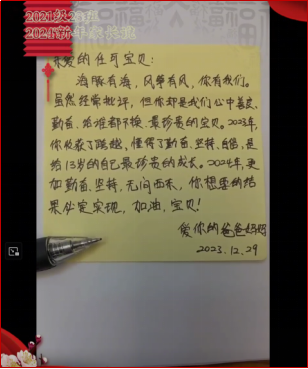 2021级23班
2024新年家长课
亲爱的任可宝贝：
海豚有海，风筝有风，你有我们。
虽然经常批评，但你却是我们心中善良、
勤奋、给谁都不换、最珍贵的宝贝。2023年，
你收获了跳越，懂得了勤奋、坚持、自信，是
给13岁的自己最珍贵的成长。2024年，更
加勤奋、坚持，无问西东，你想要的结
果必定实现，加油，宝贝！
爱你的爸爸妈妈
2023.12.29